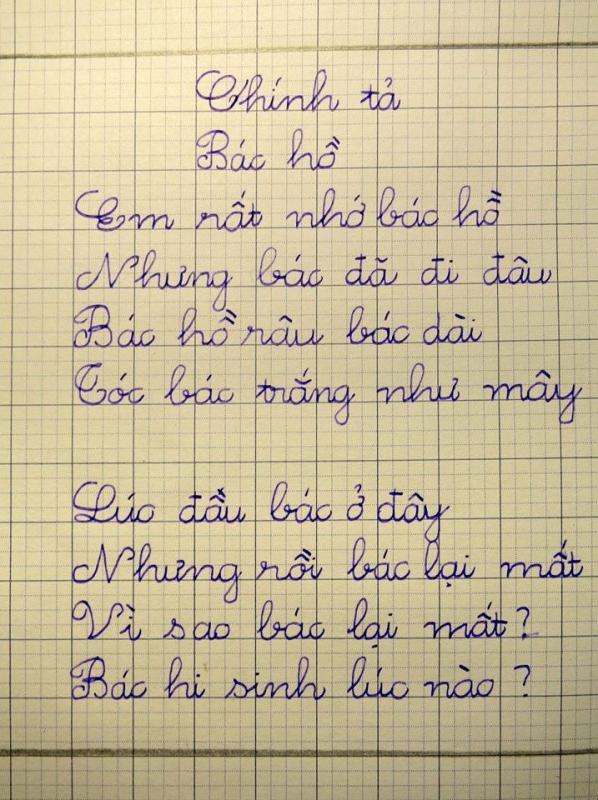 Chính tả
Bác hồ
Em rất nhớ bác hồ
Nhưng bác đã đi đâu
Bác hồ râu bác dài
Tóc bác trắng như mây
Lúc đầu bác ở đây
Nhưng rồi bác lại mất
Vì sao bác lại mất?
Bác hi sinh lúc nào?